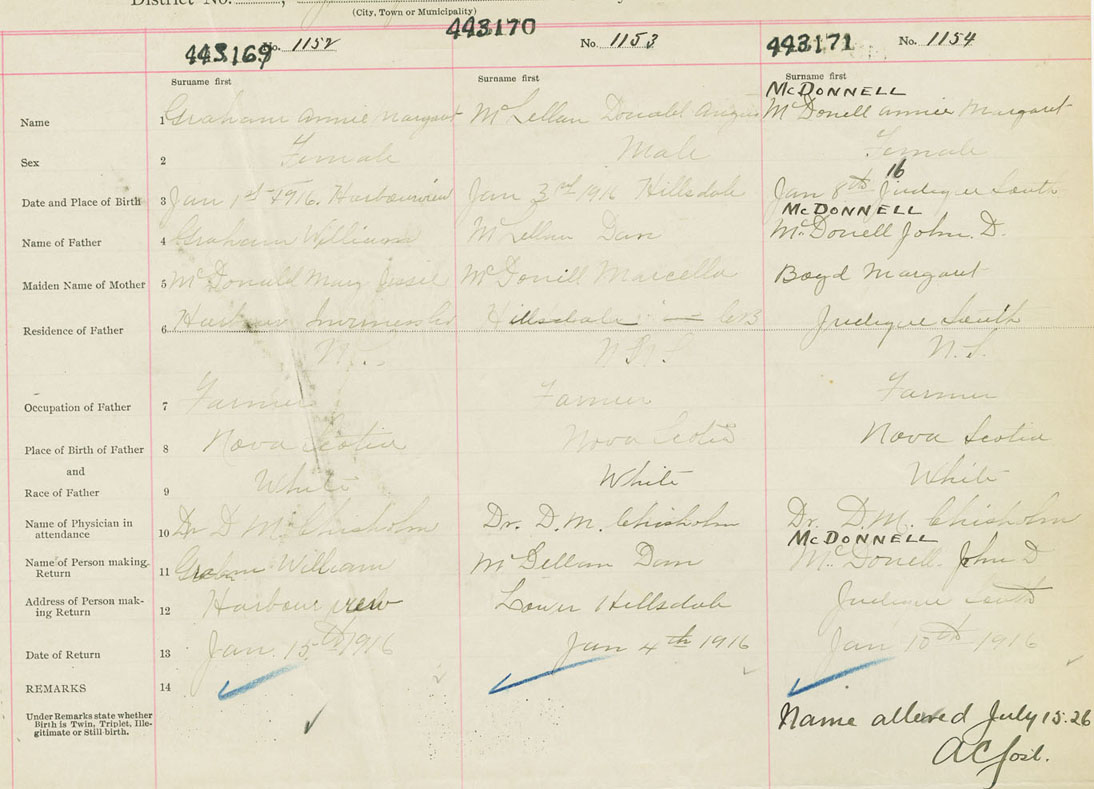 District No. ,
(City, Town or Municipality)
443169 No. 1152
443170 No. 1153
443171 No. 1154
Surname first Surname first Surname first
McDONNELL
Name 1 Graham Annie Margaret McLellan Donald Angus McDonell Annie Margaret
Sex 2 Female Male Female
16
Date and Place of Birth 3 Jan 1st 1916. Harbourview Jan 3rd 1916 Hillsdale Jan 8th Judique South
McDONNELL
Name of Father 4 Graham William McLellan Dan McDonell John. D.
Maiden Name of Mother 5 McDonald Mary Jessie McDonill Marcella Boyd Margaret
Residence of Father 6 Harbour Inverness Co Hillsdale — Judique South
N.S. N.S. N.S.
Occupation of Father 7 Farmer Farmer Farmer
Place of Birth of Father 8 Nova Scotia Nova Scotia Nova Scotia
and
Race of Father 9 White White White
Name of Physician in
attendance 10 Dr D M Chisholm Dr. D.M. Chisholm Dr. D.M. Chisholm
McDONNELL
Name of Person making
Return 11 Graham William McLellan Dan McDonell. John D
Address of Person mak-
ing Return 12 Harbour view Lower Hillsdale Judique South
Date of Return 13 Jan. 15th 1916 Jan 4th 1916 Jan 10th 1916
REMARKS 14
Under Remarks state whether
Birth is Twin, Triplet, Ille-
gitimate or Still-birth.
Name altered July 15.26